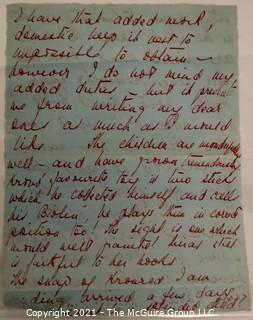 I have that added work,
domestic help is next to
impossible to obtain –
however I do not mind my
added duties – but it prevents
me from writing my dear
ones as much as I would
like. The children are wonderfully
well – and have grown tremendously
favourite toy is two sticks
which he collected himself and calls
his he plays them in correct
position too! The sight is one which
would well paint!
is faithful to her books.
The snap of I am
arrived a few days
Copyright 2021 - McGuire Group, LLC